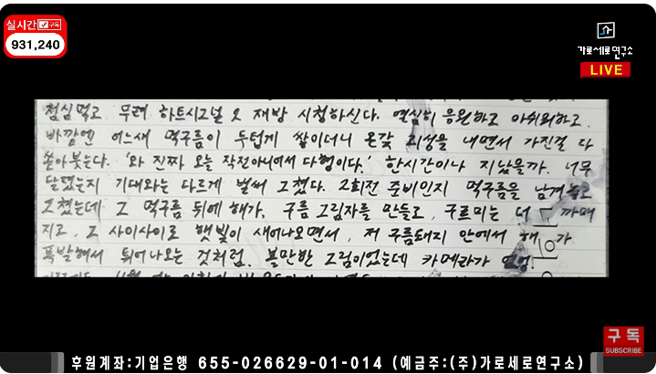 실시간 구독
931,240
가로세로연구소
LIVE
점심먹고 무려 하트시그널 오 재방 시청하신다. 열심히 응원하고 아쉬워하고.
바깥엔 어느새 먹구름이 두텁게 쌓이더니 온갖 괴성을 내면서 가진걸 다
쏟아붓는다. '와 진짜 오늘 작전아니어서 다행이다.' 한시간이나 지났을까. 너무
달렸는지 기대와는 다르게 벌써 그쳤다. 2회전 준비인지 먹구름을 남겨놓고
그쳤는데 그 먹구름 뒤에 해가. 구름 그림자를 만들고, 구르미는 더 까매
지고, 그 사이사이로 햇빛이 새어나오면서, 저 구름돼지 안에서 해가
폭발해서 튀어나오는 것처럼. 볼만한 그림이었는데 카메라가
구독
SUBSCRIBE
후원계좌:기업은행 655-026629-01-014 (예금주:(주)가로세로연구소)